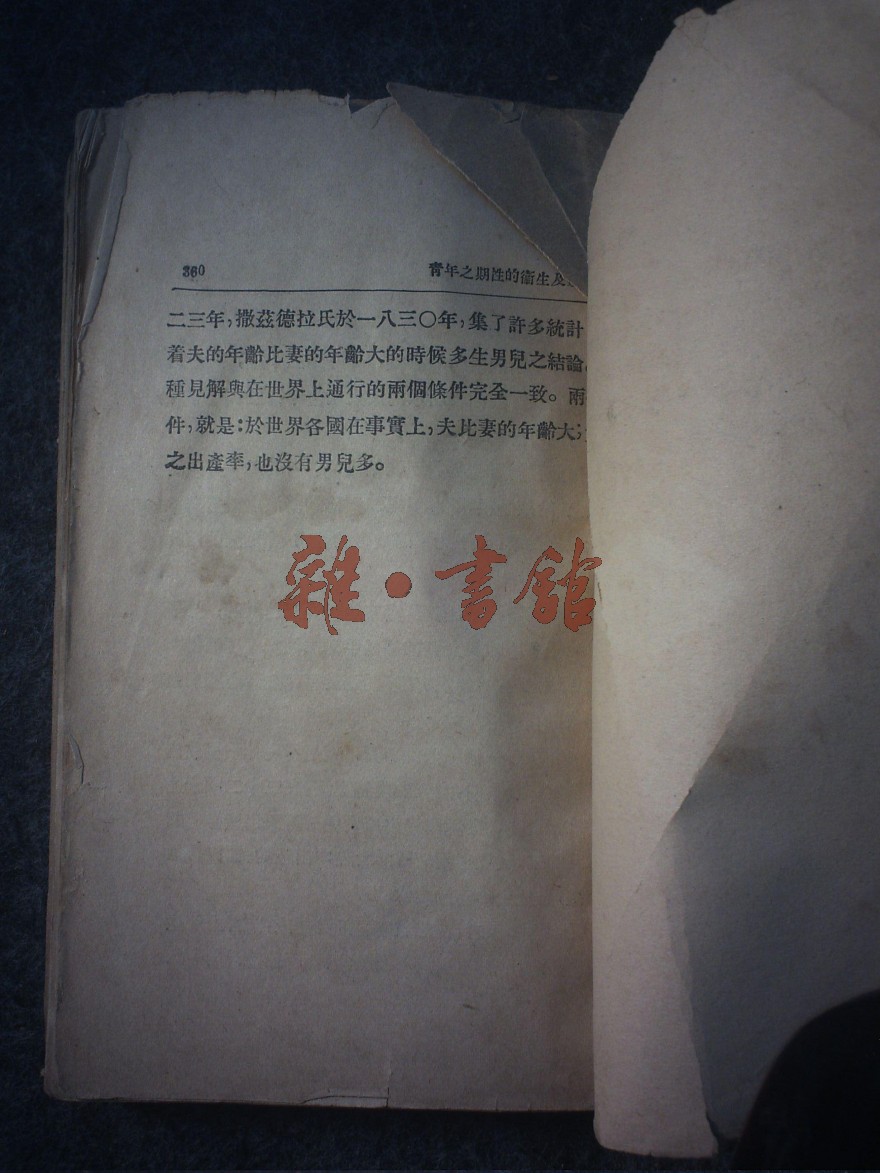 360
青年之期性的衞生及
二三年，撒茲德拉氏於一八三〇年，集了許多統計
着夫的年齡比妻的年齡大的時候多生男兒之結論。
種見解與在世界上通行的兩個條件完全一致。兩
件，就是：於世界各國在事實上，夫比妻的年齡大；
之出產率，也沒有男兒多。
雜·書館